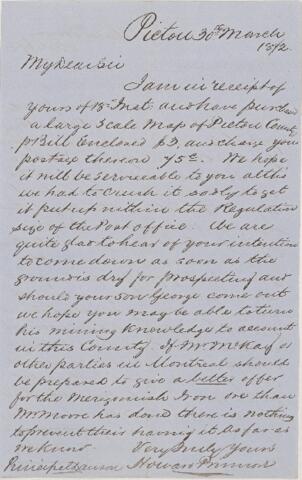 Pictou 30th March
1872
My Dear Sir
I am in receipt of
yours of 18 Inst and have purchd
a large Scale Map of Pictou County
p Bill Enclosed $3, and charge your
postage thereon 75c. We hope
it will be serviceable to you altho
we had to crush it sadly to get
it put up within the Regulation
size of the Post office. We are
quite glad to hear of your intention
to come down as soon as the
ground is dry for prospecting and
should your son George come out
we hope you may be able to turn
his mining Knowledge to account
in this County. If Mr McKay or
other parties in Montreal should
be prepared to give a better offer
for the Merigomish Iron ore than
Mr Moore has done there is nothing
to prevent their having it as far as
we know
Very truly Yours
Principal Dawson Howard Primrose